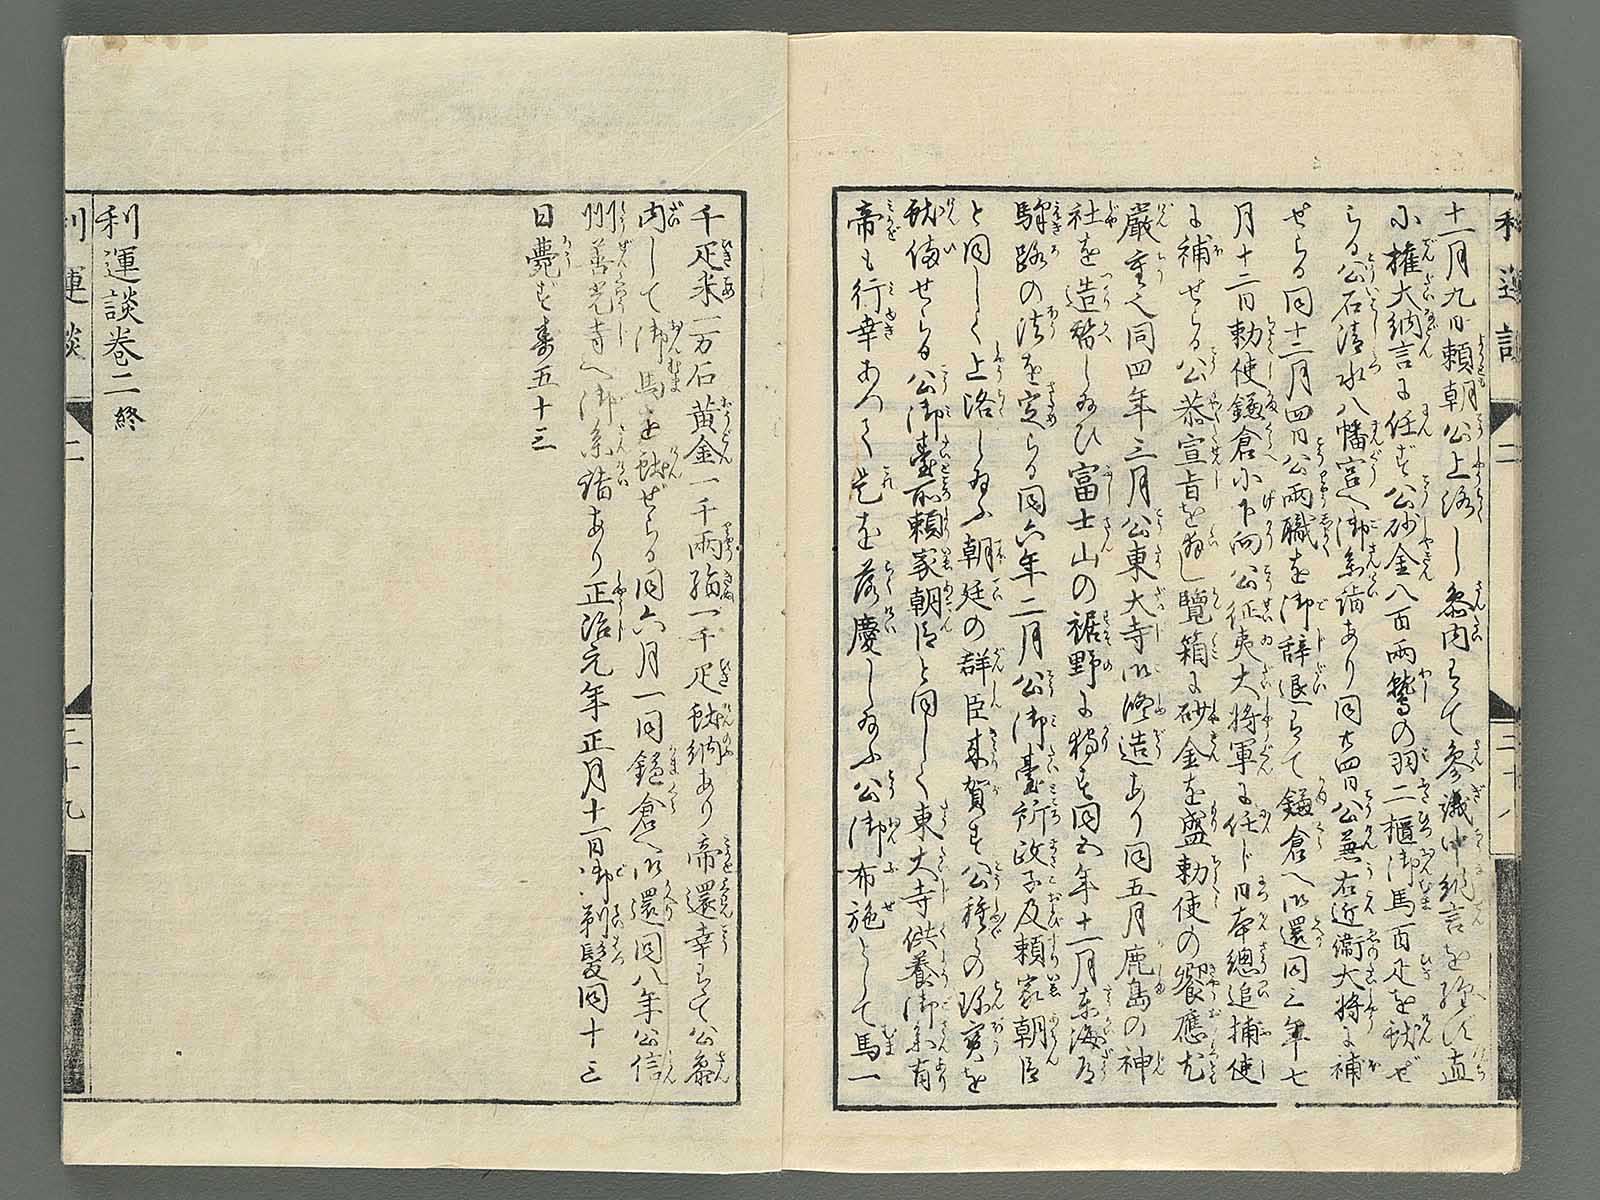 十一月九日頼朝公上洛し参内して参議中納言を経ず直
に権大納言に任ず公砂金八百両鷲の羽二櫃御馬百疋を献ぜ
らる公石清水八幡宮へ御参詣あり同廿四日公兼右近衛大将に補
せらる同十二月四日公両職を御辞退して鎌倉へ御還同三年七
月十二日勅使鎌倉に下向公征夷大将軍に任じ日本總追捕使
に補せらる公恭宣旨を拝し覧箱に砂金を盛勅使の饗應尤
厳重也同四年三月公東大寺御修造あり同五月鹿島の神
社を造替し給ひ富士山の裾野に狩す同五年十一月東海道
駅路の法を定らる同六年二月公御臺所政子及頼家朝臣
と同しく上洛し給ふ朝廷の群臣来賀す公種々の珍寳を
献備せらる公御臺所頼家朝臣と同しく東大寺供養御参有
帝も行幸あつて是を落慶し給ふ公御布施として馬一
千疋米一万石黄金一千両絹一千疋献納あり帝還幸して公参
内して御馬を献ぜらる同六月一同鎌倉へ御還同八年公信
州善光寺へ御参詣あり正治元年正月十一日御剃髪同十三
日薨ず寿五十三
利運談巻二終
利運談
二
二十九